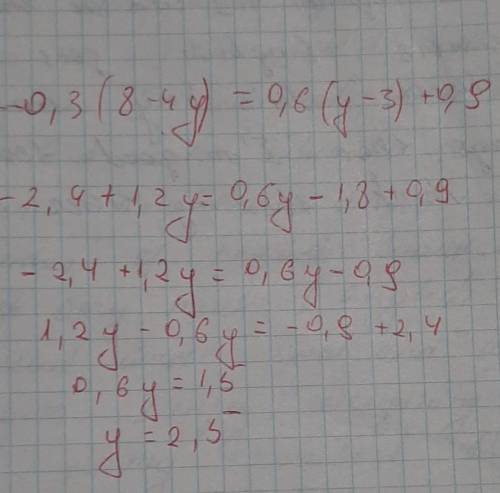 -0,3(8-4y) = 0,6(y-3)+0,9
-2,4+1,2y= 0,6y-1,8+0,9
-2,4+1,2y= 0,6y-0,9
1,2y-0,6y= -0,9+2,4
0,6y=1,5
y=2,5